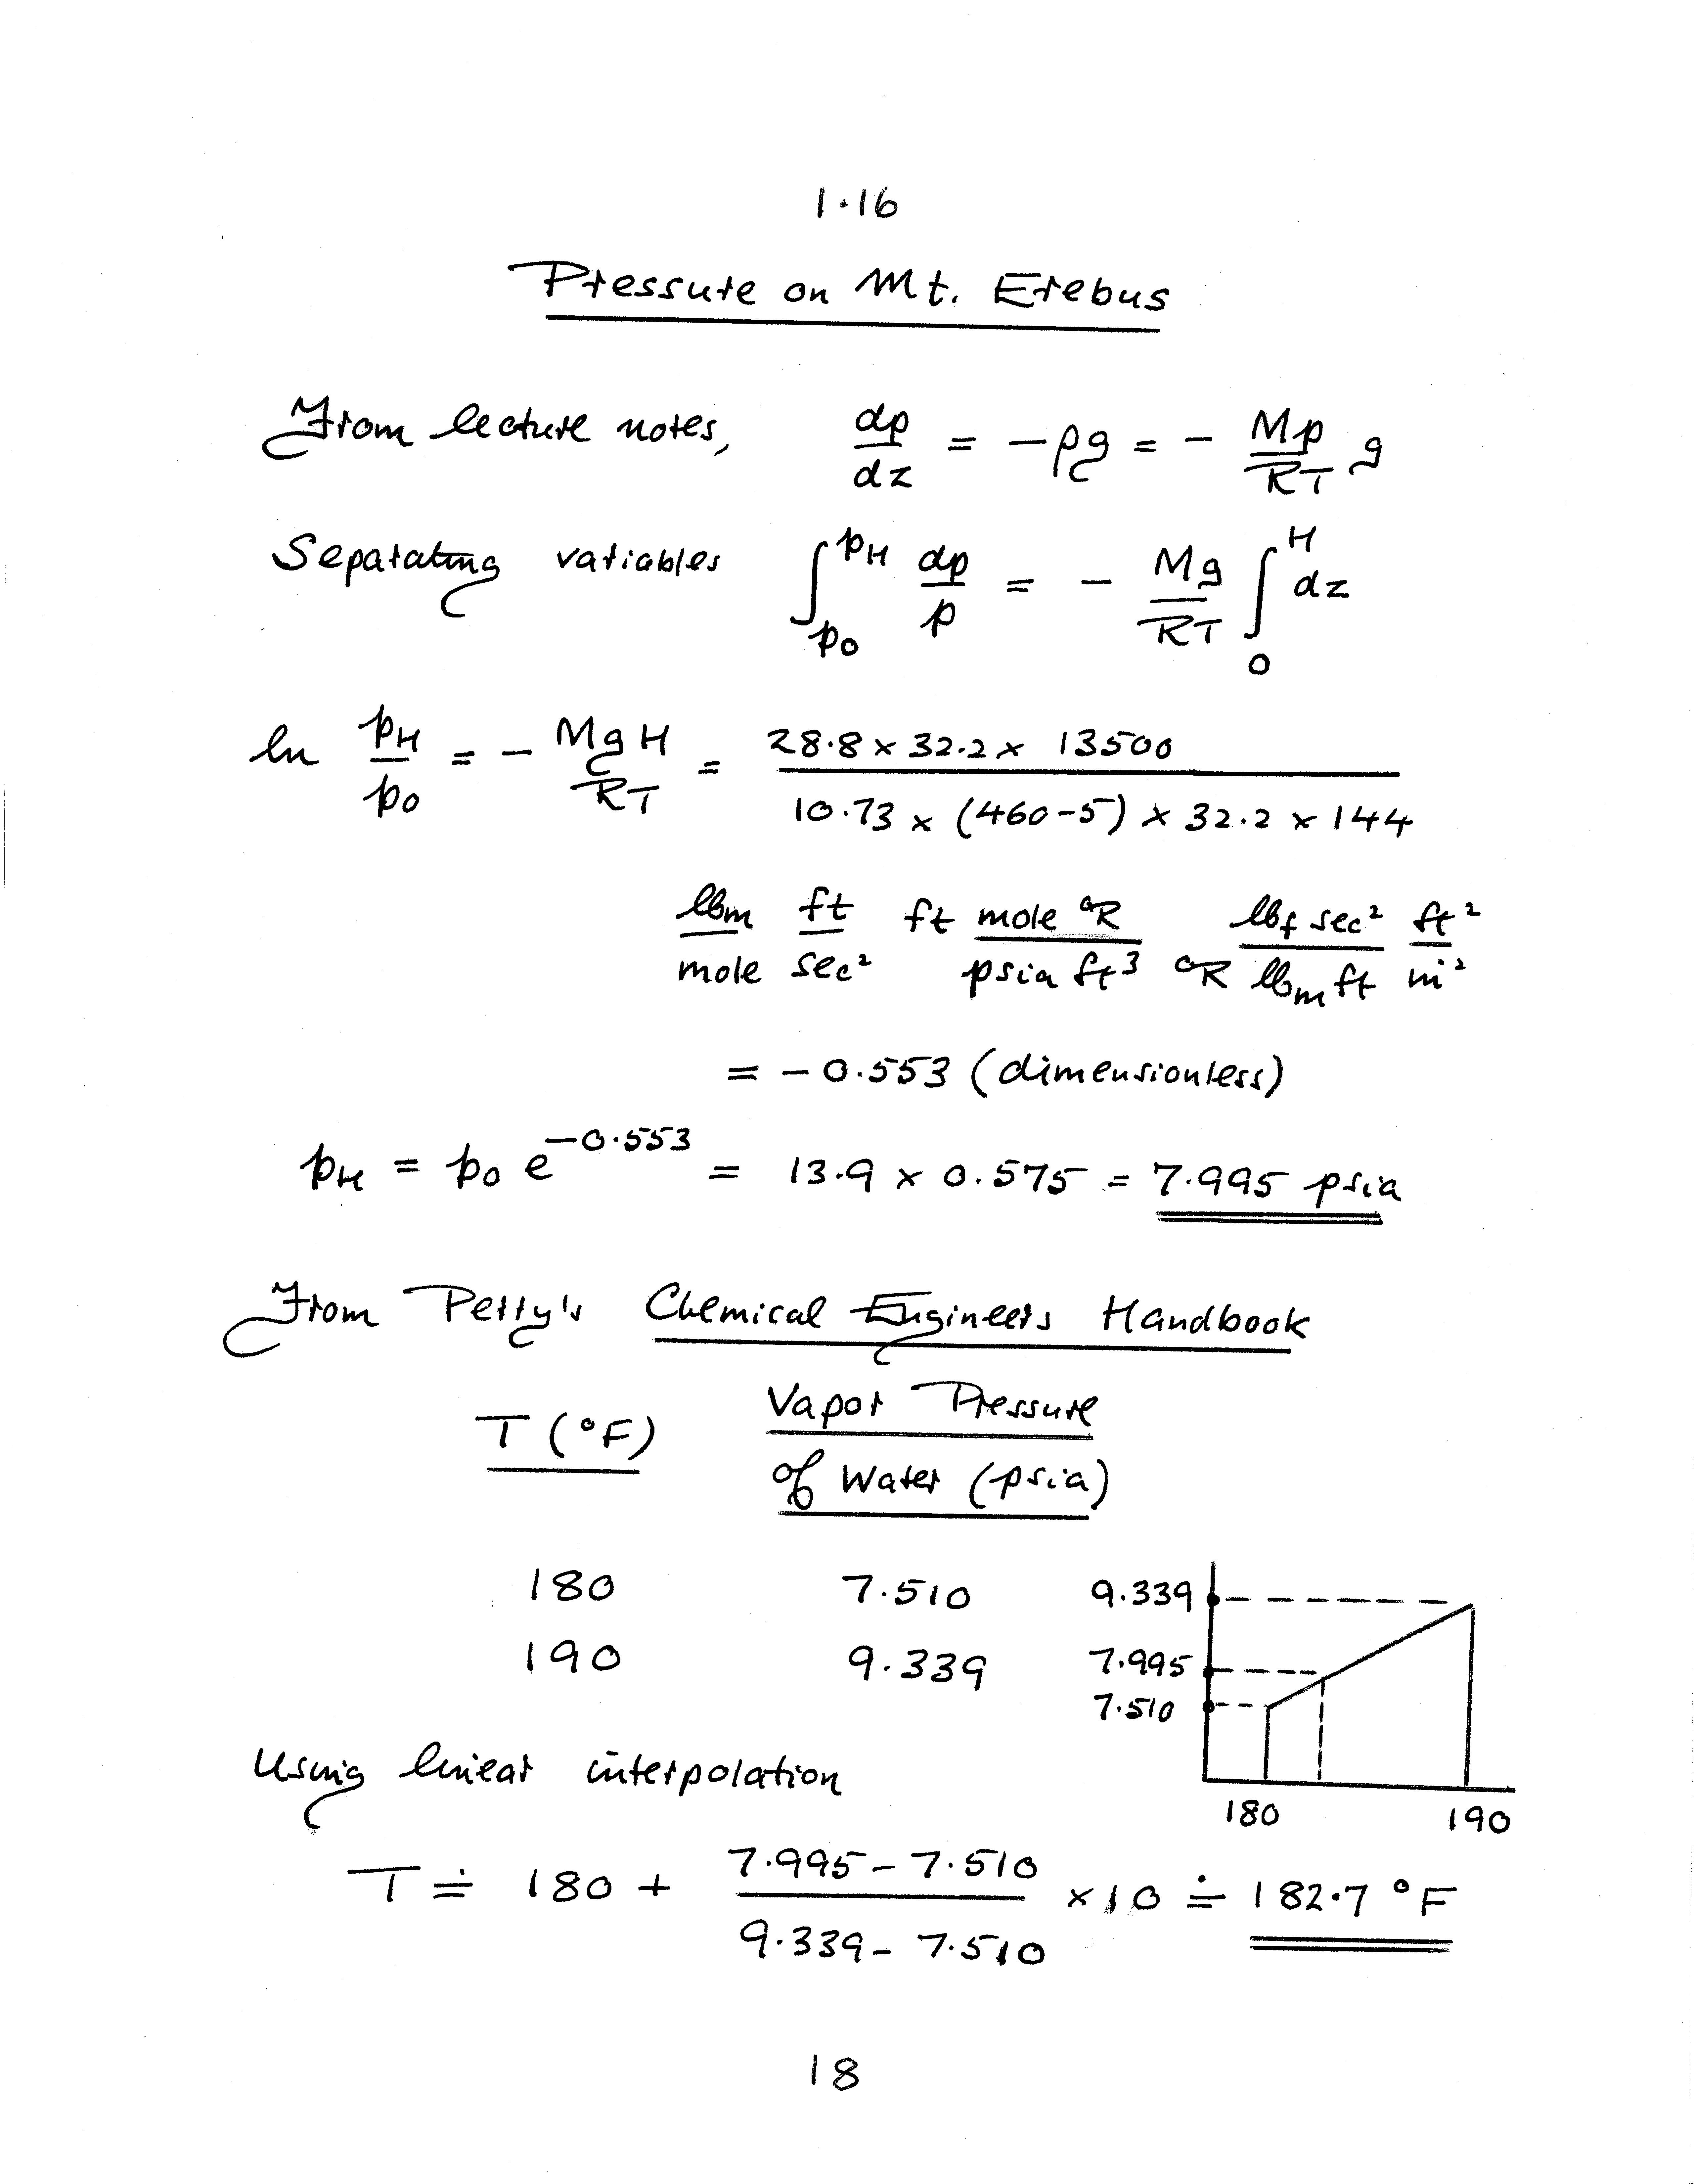 1.16
Pressure on Mt. Erebus
From lecture notes, dp/dz = -ρg = - Mp/RT g
Separating variables ∫_{p0}^{pH} dp/p = - Mg/RT ∫_0^H dz
ln pH/p0 = - MgH/RT = 28.8 × 32.2 × 13500 / 10.73 × (460-5) × 32.2 × 144
lbm/mole ft/sec² ft mole °R/psia ft³ °R lbf sec²/lbm ft ft²/in²
= - 0.553 (dimensionless)
pH = p0 e^{-0.553} = 13.9 × 0.575 = 7.995 psia
From Perry's Chemical Engineers Handbook
T (°F) Vapor Pressure
of Water (psia)
180 7.510
190 9.339
9.339
7.995
7.510
180 190
Using linear interpolation
T ≐ 180 + 7.995 - 7.510 / 9.339 - 7.510 × 10 ≐ 182.7 °F
18